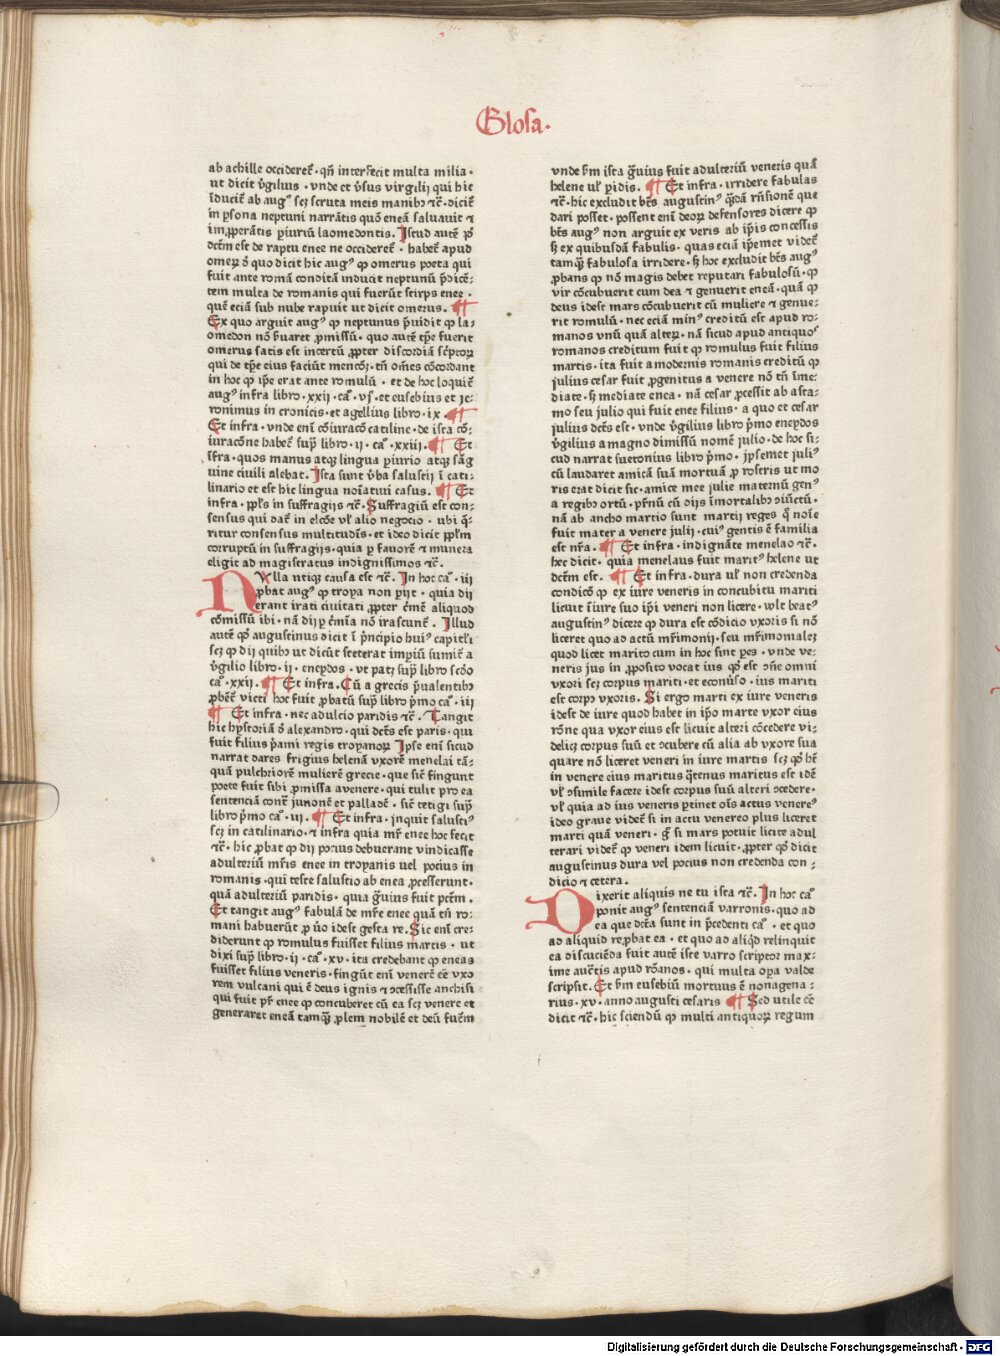 Glosa.
ab achille occideret̄ · qn̄ interfecit multa milia ·
ut dicit v̓giliꝰ · vnde et v̓sus virgilij qui hic
īducit̄ ab augꝰ scꝫ scruta meis manibꝫ ⁊c̄ · dicit̄
in ꝑsona neptuni narrātis quō eneā saluauit ⁊
im̄ꝓꝑātis ꝑiuriū laomedontis. Istud autē ꝓ̄
dctm̄ est de raptu enee ne occideret̄ · habet̄ apud
omeꝝ · ō quo dicit hic augꝰ ꝙ omerus poeta qui
fuit ante romā conditā inducit neptunū p̄dicē-
tem multa de romanis qui fuerūt stirps enee ·
quē eciā sub nube rapuit ut dicit omerus. ¶
Ex quo arguit augꝰ ꝙ neptunus p̄uidit ꝙ la-
omedon nō ẜuaret ꝓmissū · quo autē tꝑe fuerit
omerus satis est incertū ꝓpter discordiā sc̓ptoꝝ
qui de tꝑe eius faciūt mentōꝫ · tn̄ om̄es cōcordant
in hoc ꝙ ip̄e erat ante romulū · et de hoc loquit̄
augꝰ infra libro · xxij · ca° · vj · et eusebius et je-
ronimus in cronicis · et agellius libro · ix · ¶
Et infra · vnde enī cōiuracō catiline · de ista cō-
iuracōne habet̄ supͣ libro · ij · ca° · xxiij · ¶ Et
īfra · quos manus atqꝫ lingua ꝑiurio atqꝫ sāg
uine ciuili alebat. Ista sunt v̓ba salustij ī cati-
linario et est hic lingua noīatiui casus. ¶ Et
infra · ppl̓s in suffragijs ⁊c̄ · Suffragiū est con-
sensus qui dat̄ in elcōe vl̓ alio negocio · ubi q̄-
ritur consensus multitudīs · et ideo dicit ppl̓m
corruptū in suffragijs · quia ꝑ fauorē ⁊ munera
eligit ad magistratus indignissimos ⁊c̄ ·
Nulla utiqꝫ causa est ⁊c̄. In hoc ca° · iij
ꝓbat augꝰ ꝙ troya non ꝑijt · quia dij
erant irati ciuitati ꝓpter c̓mē aliquod
cōmissū ibi · nā dij ꝓ c̓mīa nō irascunt̄. Illud
autē qd̓ augustinus dicit ī p̓ncipio huiꝰ capitl̓i
scꝫ ꝙ dij quibꝫ ut dicūt steterat impiū sumit̄ a
v̓gilio libro · ij · eneydos · ut patꝫ supͣ libro scd̓o
ca° · xxij · ¶ Et infra. Cū a grecis p̄ualentibꝫ
ꝓbet̄ victi hoc fuit ꝓbatū supͣ libro p̓mo ca° · iij
¶ Et infra · nec adulcio paridis ⁊c̄ · Tangit
hic hystoriā ō alexandro · qui dctūs est paris · qui
fuit filius p̓ami regis troyanoꝝ Ipse enī sicud
narrat dares frigius helenā vxorē menelai tā-
quā pulchriorē mulierē grecie · que sic̄ fingunt
poete fuit sibi ꝓmissa a venere · qui tulit pro ea
sentenciā contͣ junonē et palladē · sic̄ tetigi supͣ
libro p̓mo ca° · iij · ¶ Et infra · inquit salustiꝰ
scꝫ in catilinario · ⁊ infra quia mr̄ enee hoc fecit
⁊c̄ · hic ꝓbat ꝙ dij pocius debuerant vindicasse
adulteriū mr̄is enee in troyanis uel pocius in
romanis · qui teste salustio ab enea ꝓcesserunt ·
quā adulteriū paridis · quia gͣuius fuit pctm̄ ·
Et tangit augꝰ fabulā de mr̄e enee quā tn̄ ro-
mani habuerūt ꝓ v̓o idest gesta re. Sic enī cre-
diderunt ꝙ romulus fuisset filius martis · ut
dixi supͣ libro · ij · ca° · xv · ita credebant ꝙ eneas
fuisset filius veneris · fingūt enī venerē eē vxo
rem vulcani qui ē deus ignis ⁊ ꝯcessisse anchisi
qui fuit pr̄ enee ꝙ concuberet cū ea scꝫ venere et
generaret eneā tamqͣꝫ ꝓlem nobilē et deū futm̄
vnde ẜm ista gͣuius fuit adulteriū veneris quā
helene ul̓ ꝑidis. ¶ Et infra · irridere fabulas
⁊c̄ · hic excludit bt̄s augustinꝰ qͣdā rn̄sionē que
dari posset · possent enī deoꝝ defensores dicere ꝙ
bt̄s augꝰ non arguit ex veris ab ip̄is concessis
sꝫ ex quibusdā fabulis · quas eciā ip̄emet videt̄
tamqͣꝫ fabulosa irridere · sꝫ hoc excludit bt̄s augꝰ
ꝓbans ꝙ nō magis debet reputari fabulosū · ꝙ
vir cōcubuerit cum dea ⁊ genuerit eneā · quā ꝙ
deus idest mars cōcubuerit cū muliere ⁊ genue-
rit romulū · nec eciā minꝰ creditū est apud ro-
manos vnū quā alteꝝ · nā sicud apud antiquos
romanos creditum fuit ꝙ romulus fuit filius
martis · ita fuit a modernis romanis creditū ꝙ
julius cesar fuit ꝓgenitus a venere nō tn̄ īme-
diate · sꝫ mediate enea · nā cesar ꝓcessit ab asta-
mo seu julio qui fuit enee filius · a quo et cesar
julius dctūs est · vnde v̓gilius libro p̓mo eneydos
v̓gilius a magno dimissū nomē julio · de hoc si-
cud narrat suetonius libro p̓mo · ipsemet juliꝰ
cū laudaret amicā suā mortuā ꝓ rostris ut mo
ris erat dicit sic · amice mee julie maternū genꝰ
a regibꝫ ortū · pr̄nū cū dijs īmortalibꝫ ꝯiūctū ·
nā ab ancho martio sunt martij reges qͣ noīe
fuit mater a venere julij · cuiꝰ gentis ē familia
est nr̄a. ¶ Et infra · indignāte menelao ⁊c̄ ·
hec dicit · quia menelaus fuit maritꝰ helene ut
dctm̄ est. ¶ Et infra · dura ul̓ non credenda
condicō ꝙ ex iure veneris in concubitu mariti
licuit ī iure suo ip̄i veneri non licere · vl̓t beatꝰ
augustinꝰ dicere ꝙ dura est cōdicio vxoris si nō
liceret quo ad actū mr̄imonij · seu mr̄imonialeꝫ
quod licet marito cum in hoc sint ꝑes · vnde ve-
neris jus in ꝓposito vocat ius qd̓ est ꝯn̄e omni
vxori scꝫ corpus mariti · et econūso · ius mariti
est corpꝰ vxoris. Si ergo marti ex iure veneris
idest de iure quod habet in ip̄o marte vxor eius
rōne qua vxor eius est licuit alteri cōcedere vi-
delicꝫ corpus suū et ꝯcubere cū alia ab vxore sua
quare nō liceret veneri in iure martis scꝫ qd̓ hꝫ
in venere eius maritus qͣtenus maritus est idē
vl̓ ꝯsimile facere idest corpus suū alteri ꝯcedere ·
vl̓ quia ad ius veneris ꝑtinet oīs actus venerꝰ
ideo graue videt̄ si in actu venereo plus liceret
marti quā veneri · gͦ si mars potuit licite adul
terari videt̄ ꝙ veneri idem licuit · ꝓpter qd̓ dicit
augustinus dura vel pocius non credenda con-
dicio ⁊ cetera.
Dixerit aliquis ne tu ista ⁊c̄. In hoc ca°
ponit augꝰ sentenciā varronis · quo ad
ea que dctā sunt in p̄cedenti ca° · et quo
ad aliquid rep̄hat ea · et quo ad aliqͥd relinquit
ea discuciēda fuit autē iste varro scriptor max-
ime auct̄is apud rōanos · qui multa oꝑa valde
scripsit. Et ẜm eusebiū mortuus ē nonagena-
rius · xv · anno augusti cesaris ¶ Sed utile eē
dicit ⁊c̄ · hic sciendū ꝙ multi antiquoꝝ regum
Digitalisierung gefördert durch die Deutsche Forschungsgemeinschaft - DFG